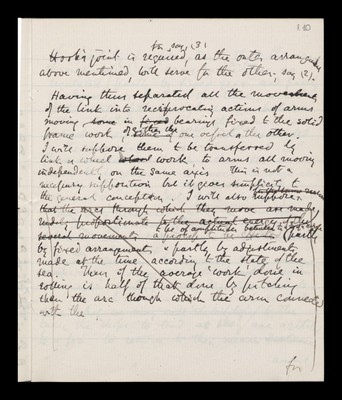 110
for say (3)
Hooke's joint is required, as the outer arrangement
above mentioned, will serve for the other, say (2).
Having thus separated all the movements
of the link into reciprocating actions of arms
moving some in fixed bearings fixed to the solid
frame work of either the one vessel or the other.
I will suppose them to be transferred by
link or wheel work, to arms all moving
independently on the same axis. This is not a
necessary supposition but it gives simplicity to
the general conception. I will also suppose
that the arcs through which they move are made
proportionate to the actual
several movements (partly
by fixed arrangements, & partly by adjustments
made at the time according to the state of the
sea. Then if the average work done in
rolling is half of that done by pitching
then the arc through which the arm connected
with the
for